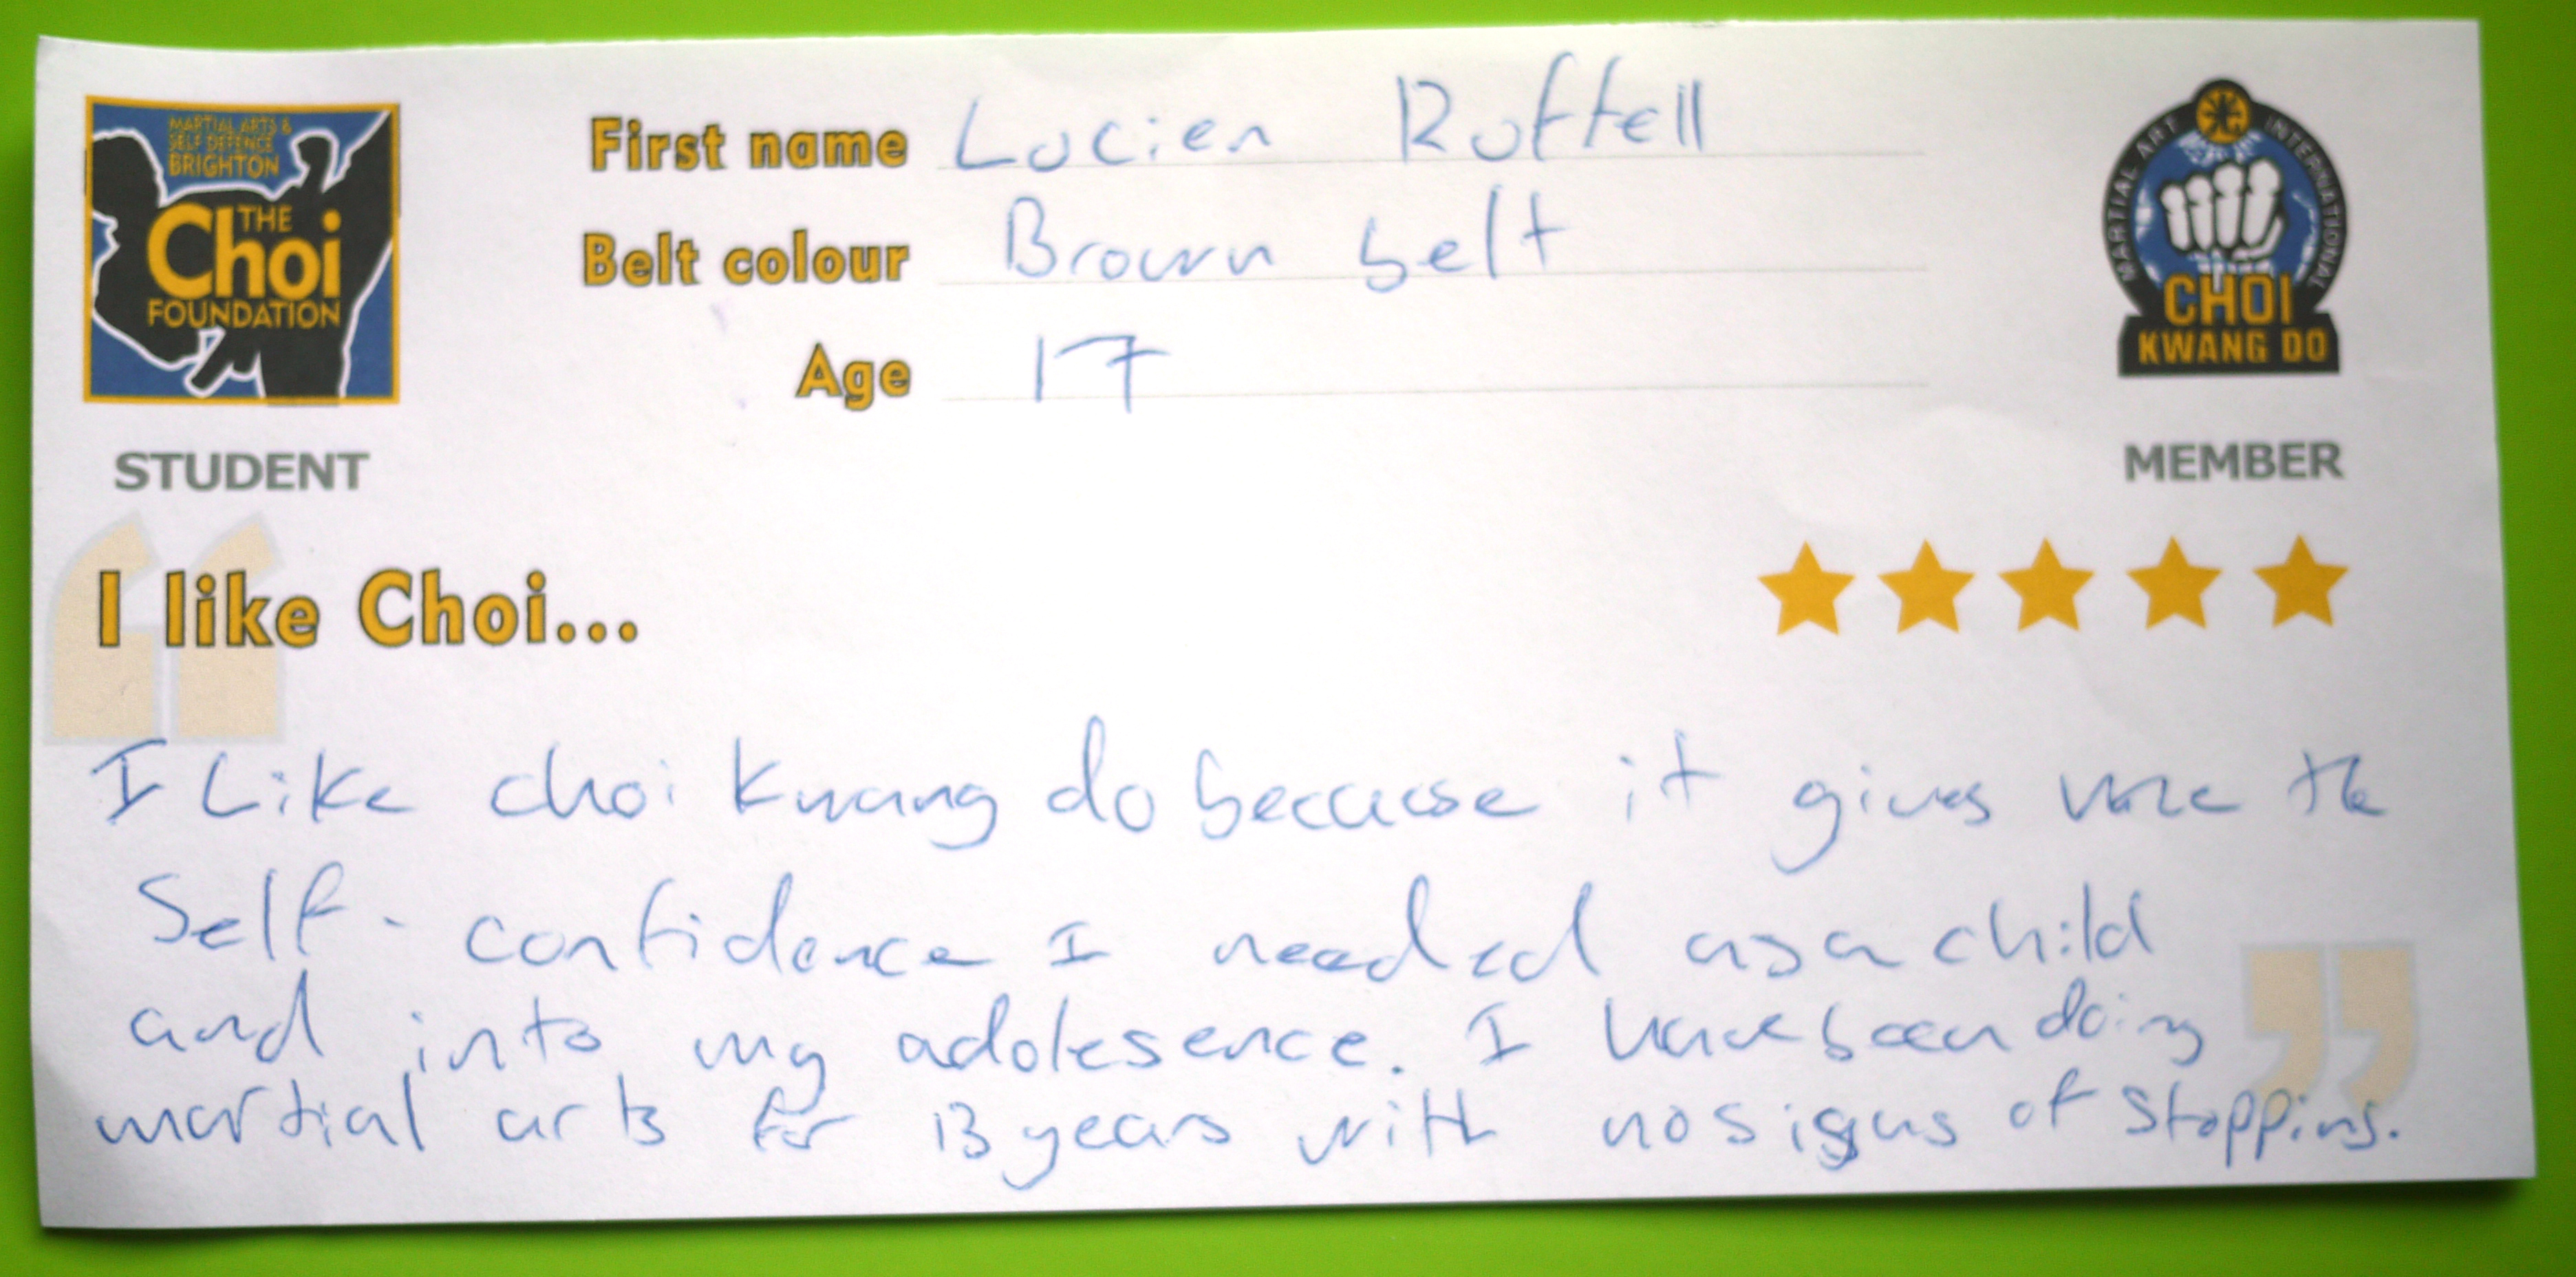 MARTIAL ARTS &
SELF DEFENCE
BRIGHTON
THE
Choi
FOUNDATION
STUDENT
First name Lucien Ruffell
Belt colour Brown belt
Age 17
MARTIAL ART INTERNATIONAL
CHOI
KWANG DO
MEMBER
I like Choi...
I Like choi kwang do because it gives me the
Self-confidence I needed as a child
and into my adolesence. I have been doing
martial arts for 13 years with no signs of stopping.